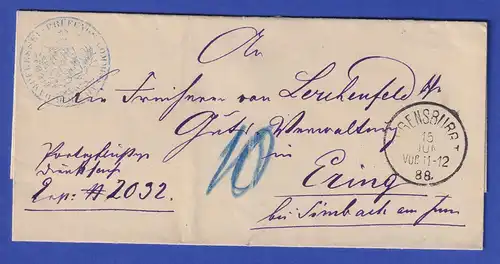 An
die Freiherr von Lerchenfeld'sche
Guts Verwaltung
in
Ering
bei Simbach am Inn
Portopflichtige
Dienstsache
Exp: # 2032.
10
REGENSBURG I
15
JUN
VOR. 11-12
88.